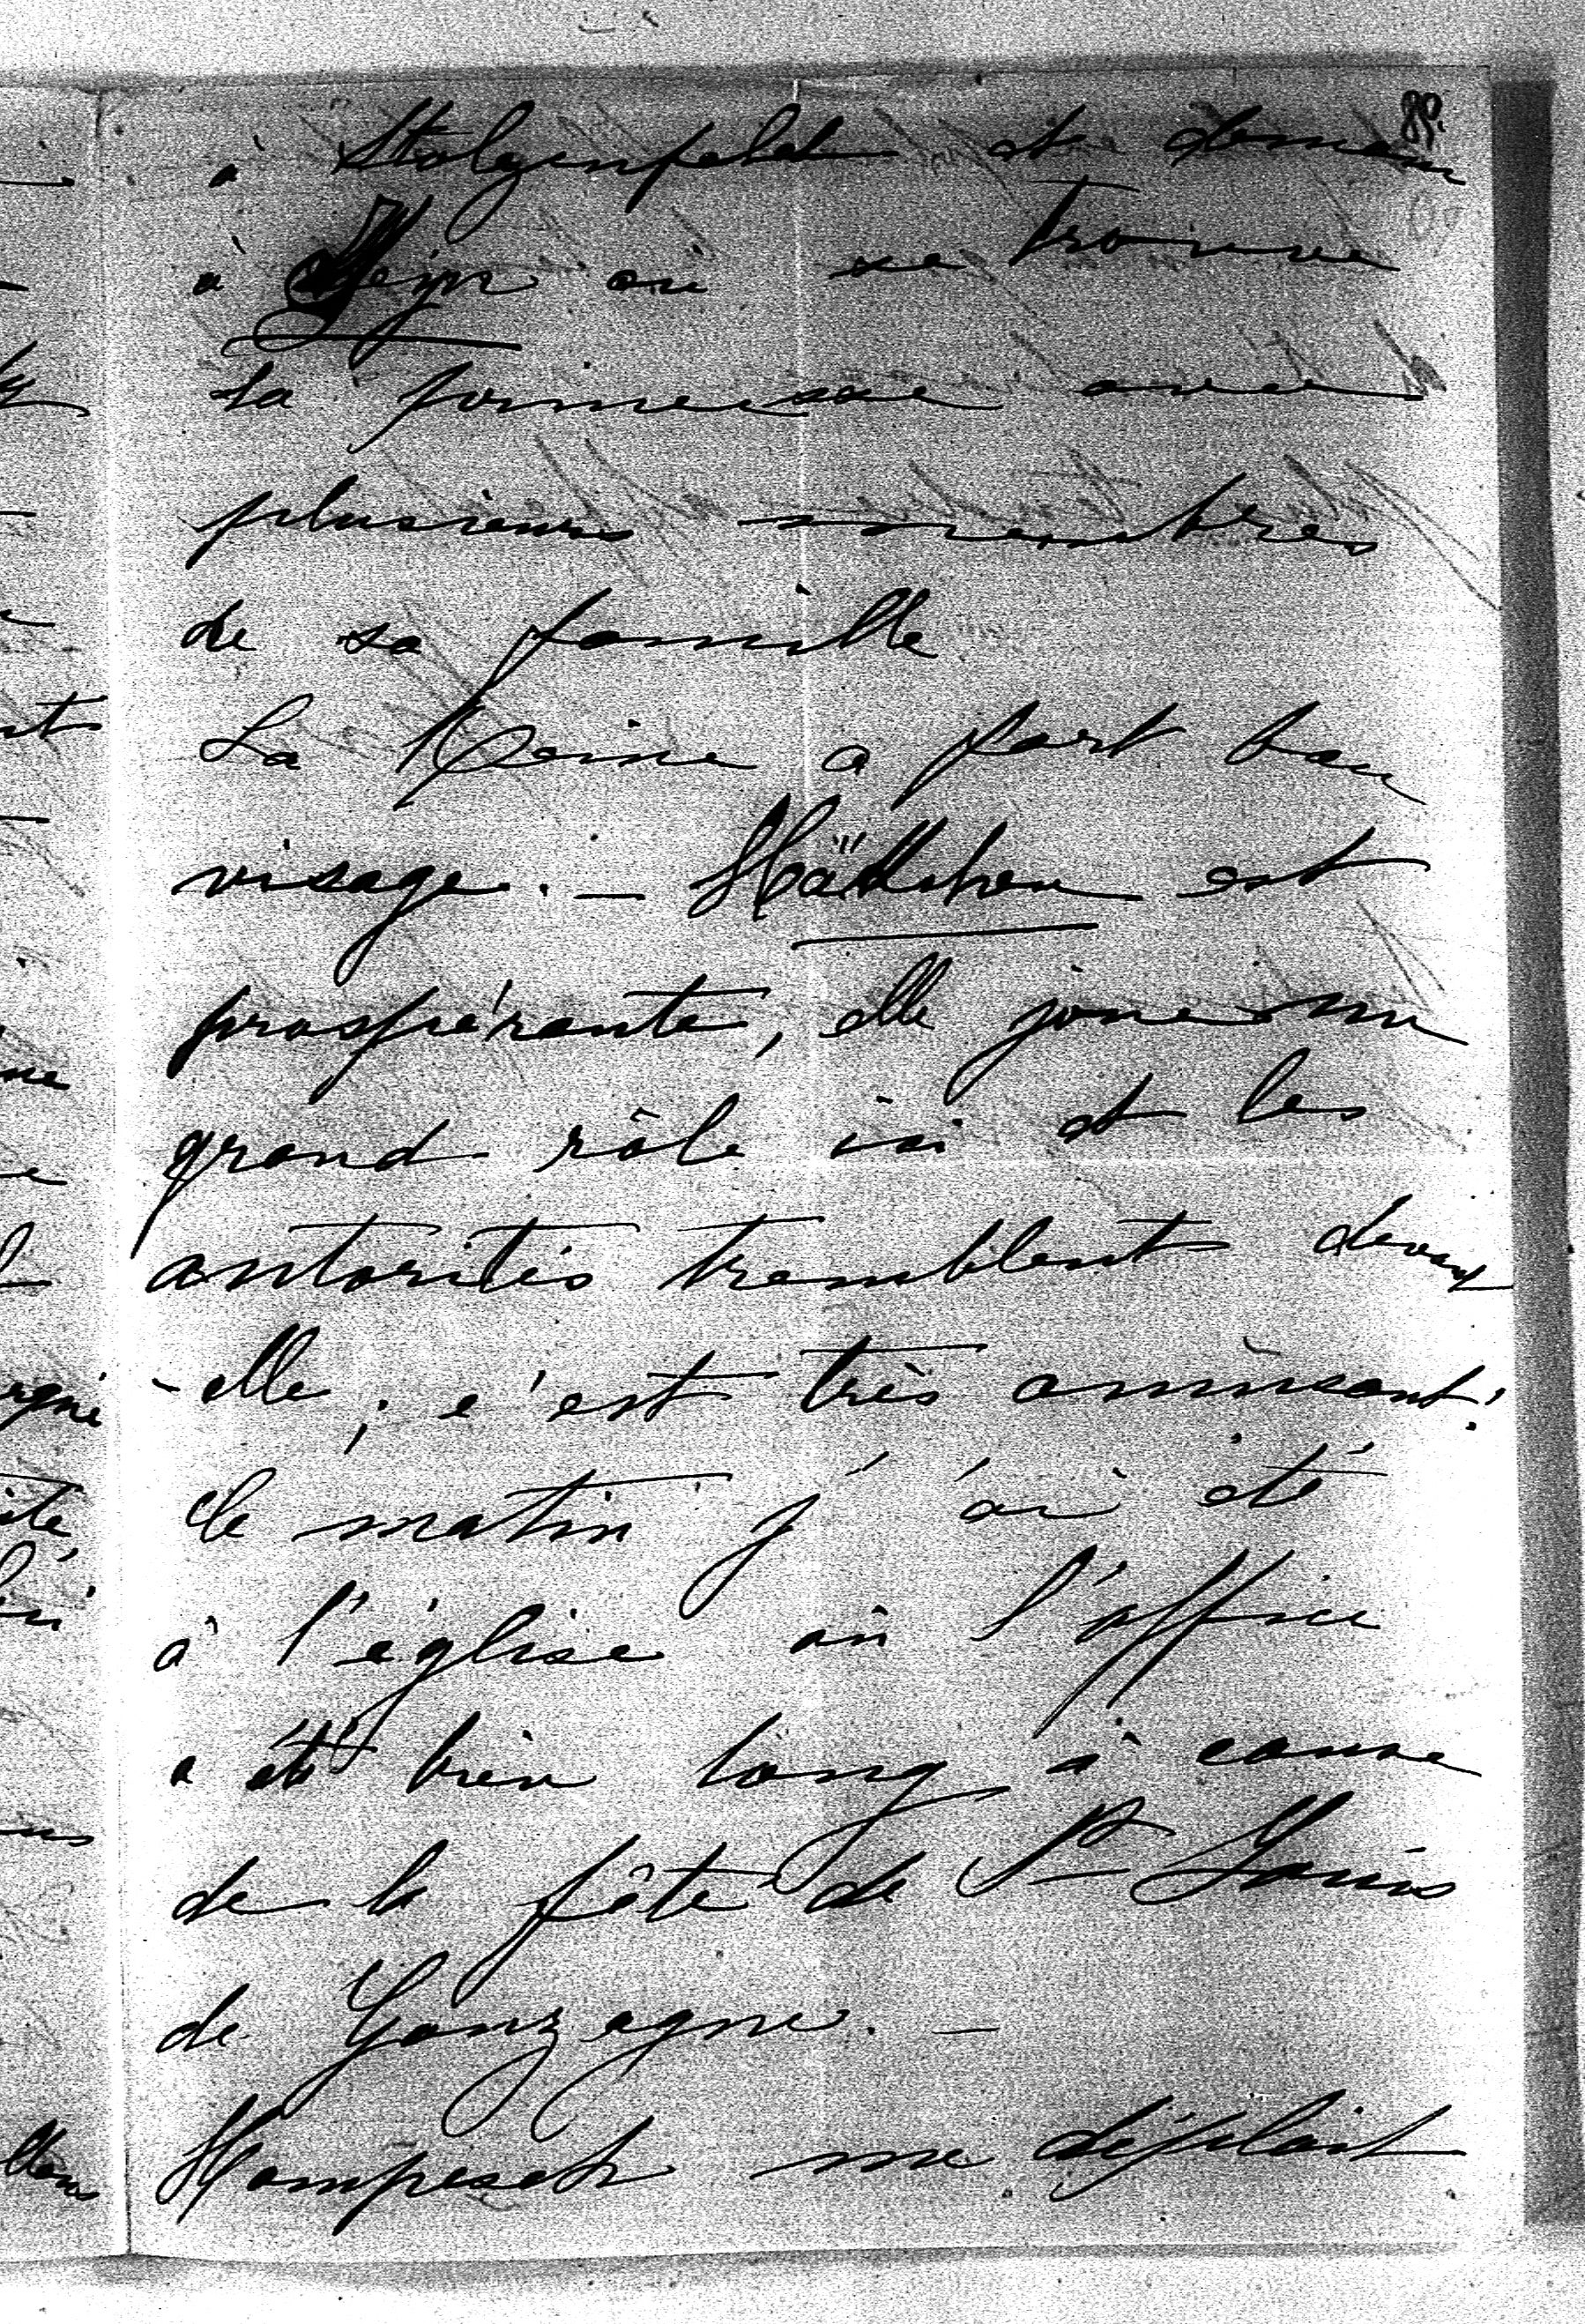 89.
à Stolzenfels et demain
à où se trouve
la princesse avec
plusieurs membres
de sa famille
La Reine a fort bon
visage. — est
prospérante, elle joue un
grand rôle ici et les
autorités tremblent devant
-elle; c'est très amusant!
Ce matin j'ai été
à l'église où l'office
a été bien long à cause
de la fête de St Louis
de Gonzague. —
Hompesch me déplait